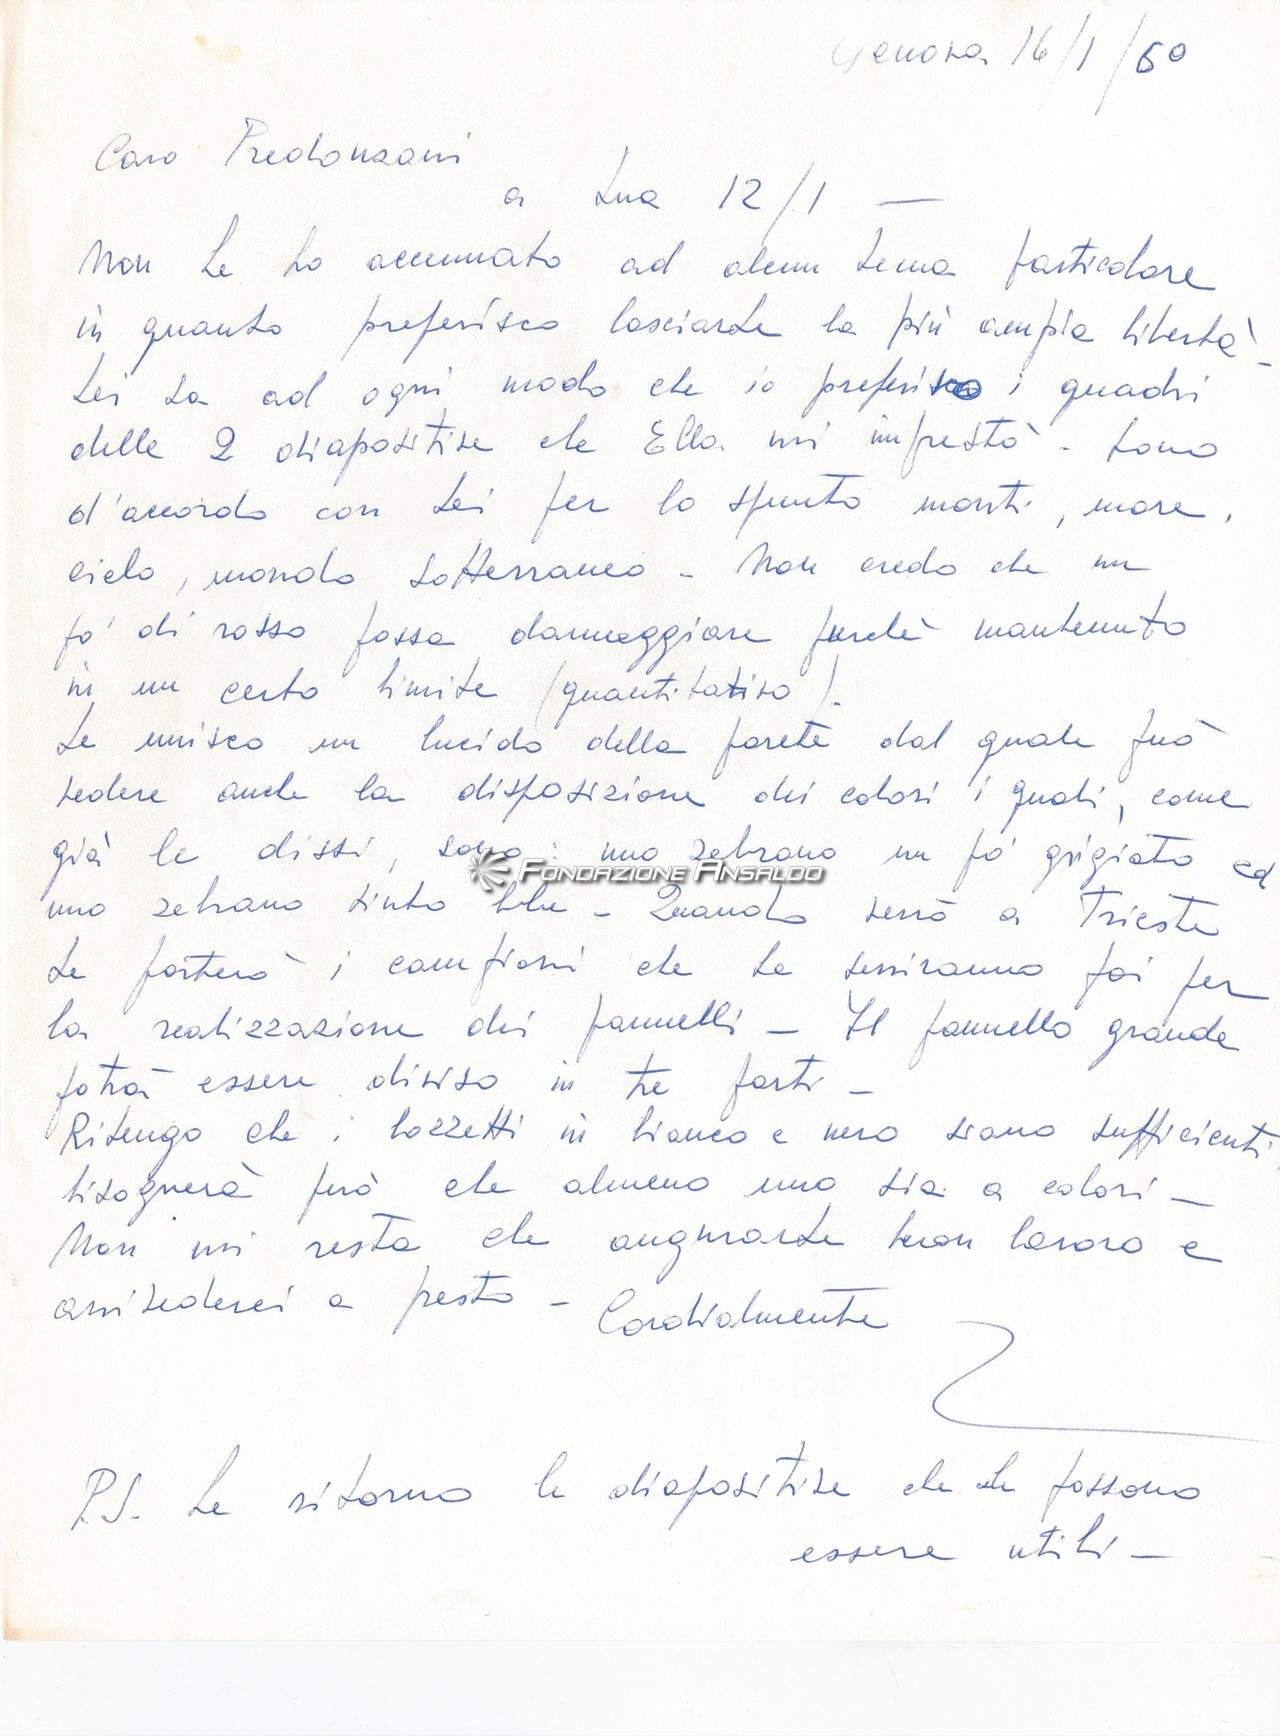 Genova 16/1/60
Caro Predonzani
a Sua 12/1 —
Non Le ho accennato ad alcun tema particolare
in quanto preferisco lasciarLe la più ampia libertà -
Lei sa ad ogni modo che io preferisco i quadri
delle 2 diapositive che Ella mi imprestò - Sono
d'accordo con Lei per lo spunto monti, mare,
cielo, mondo sotterraneo - Non credo che un
po' di rosso possa danneggiare purchè mantenuto
in un certo limite (quantitativo).
Le unisco un lucido della parete dal quale può
vedere anche la disposizione dei colori i quali, come
già le dissi, sono: uno zebrano un po' grigiato ed
FONDAZIONE ANSALDO
uno zebrano tinto blu - Quando verrò a Trieste
Le porterò i campioni che Le serviranno poi per
la realizzazione dei pannelli - Il pannello grande
potrà essere diviso in tre parti -
Ritengo che i bozzetti in bianco e nero siano sufficienti,
bisognerà però che almeno uno sia a colori -
Non mi resta che augurarLe buon lavoro e
arrivederci a presto - Cordialmente
P.S. Le ritorno le diapositive che Le possono
essere utili -